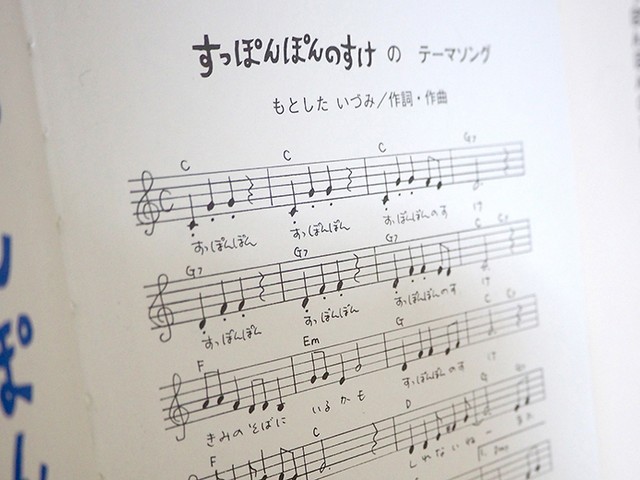 すっぽんぽんのすけ の テーマソング
もとした いづみ／作詞・作曲
C C C G7
すっぽんぽん すっぽんぽん すっぽんぽんのす け
G7 G7 G7 C
すっぽんぽん すっぽんぽん すっぽんぽんのす け
F Em G C
きみの そばに いる かも すっぽんぽんのす け
F C D G
しれないねー